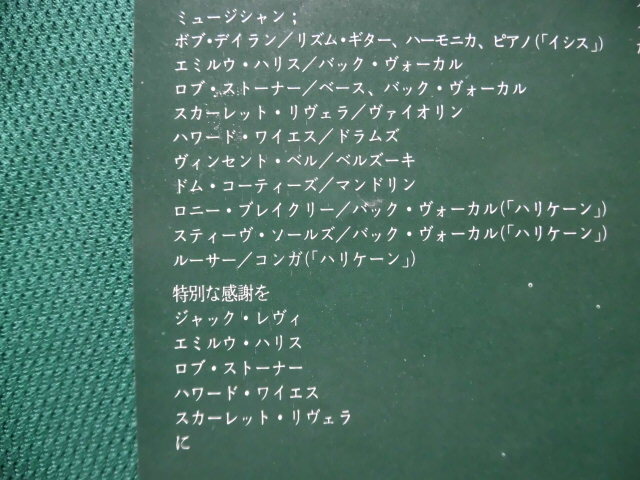 ミュージシャン；
ボブ・デイラン／リズム・ギター、ハーモニカ、ピアノ(「イシス」)
エミルウ・ハリス／バック・ヴォーカル
ロブ・ストーナー／ベース、バック・ヴォーカル
スカーレット・リヴェラ／ヴァイオリン
ハワード・ワイエス／ドラムズ
ヴィンセント・ベル／ベルズーキ
ドム・コーティーズ／マンドリン
ロニー・ブレイクリー／バック・ヴォーカル(「ハリケーン」)
スティーヴ・ソールズ／バック・ヴォーカル(「ハリケーン」)
ルーサー／コンガ(「ハリケーン」)
特別な感謝を
ジャック・レヴィ
エミルウ・ハリス
ロブ・ストーナー
ハワード・ワイエス
スカーレット・リヴェラ
に